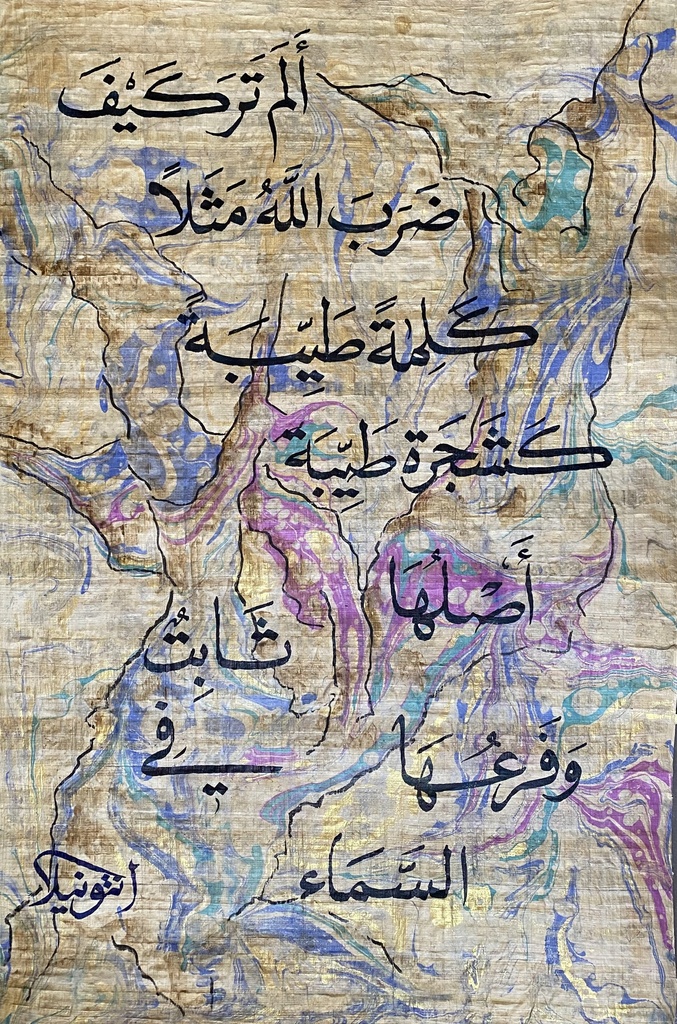 أَلَمْ تَرَ كَيْفَ
ضَرَبَ اللَّهُ مَثَلًا
كَلِمَةً طَيِّبَةً
كَشَجَرَةٍ طَيِّبَةٍ
أَصْلُهَا
ثَابِتٌ
وَفَرْعُهَا فِي
السَّمَاءِ
انتونيلا